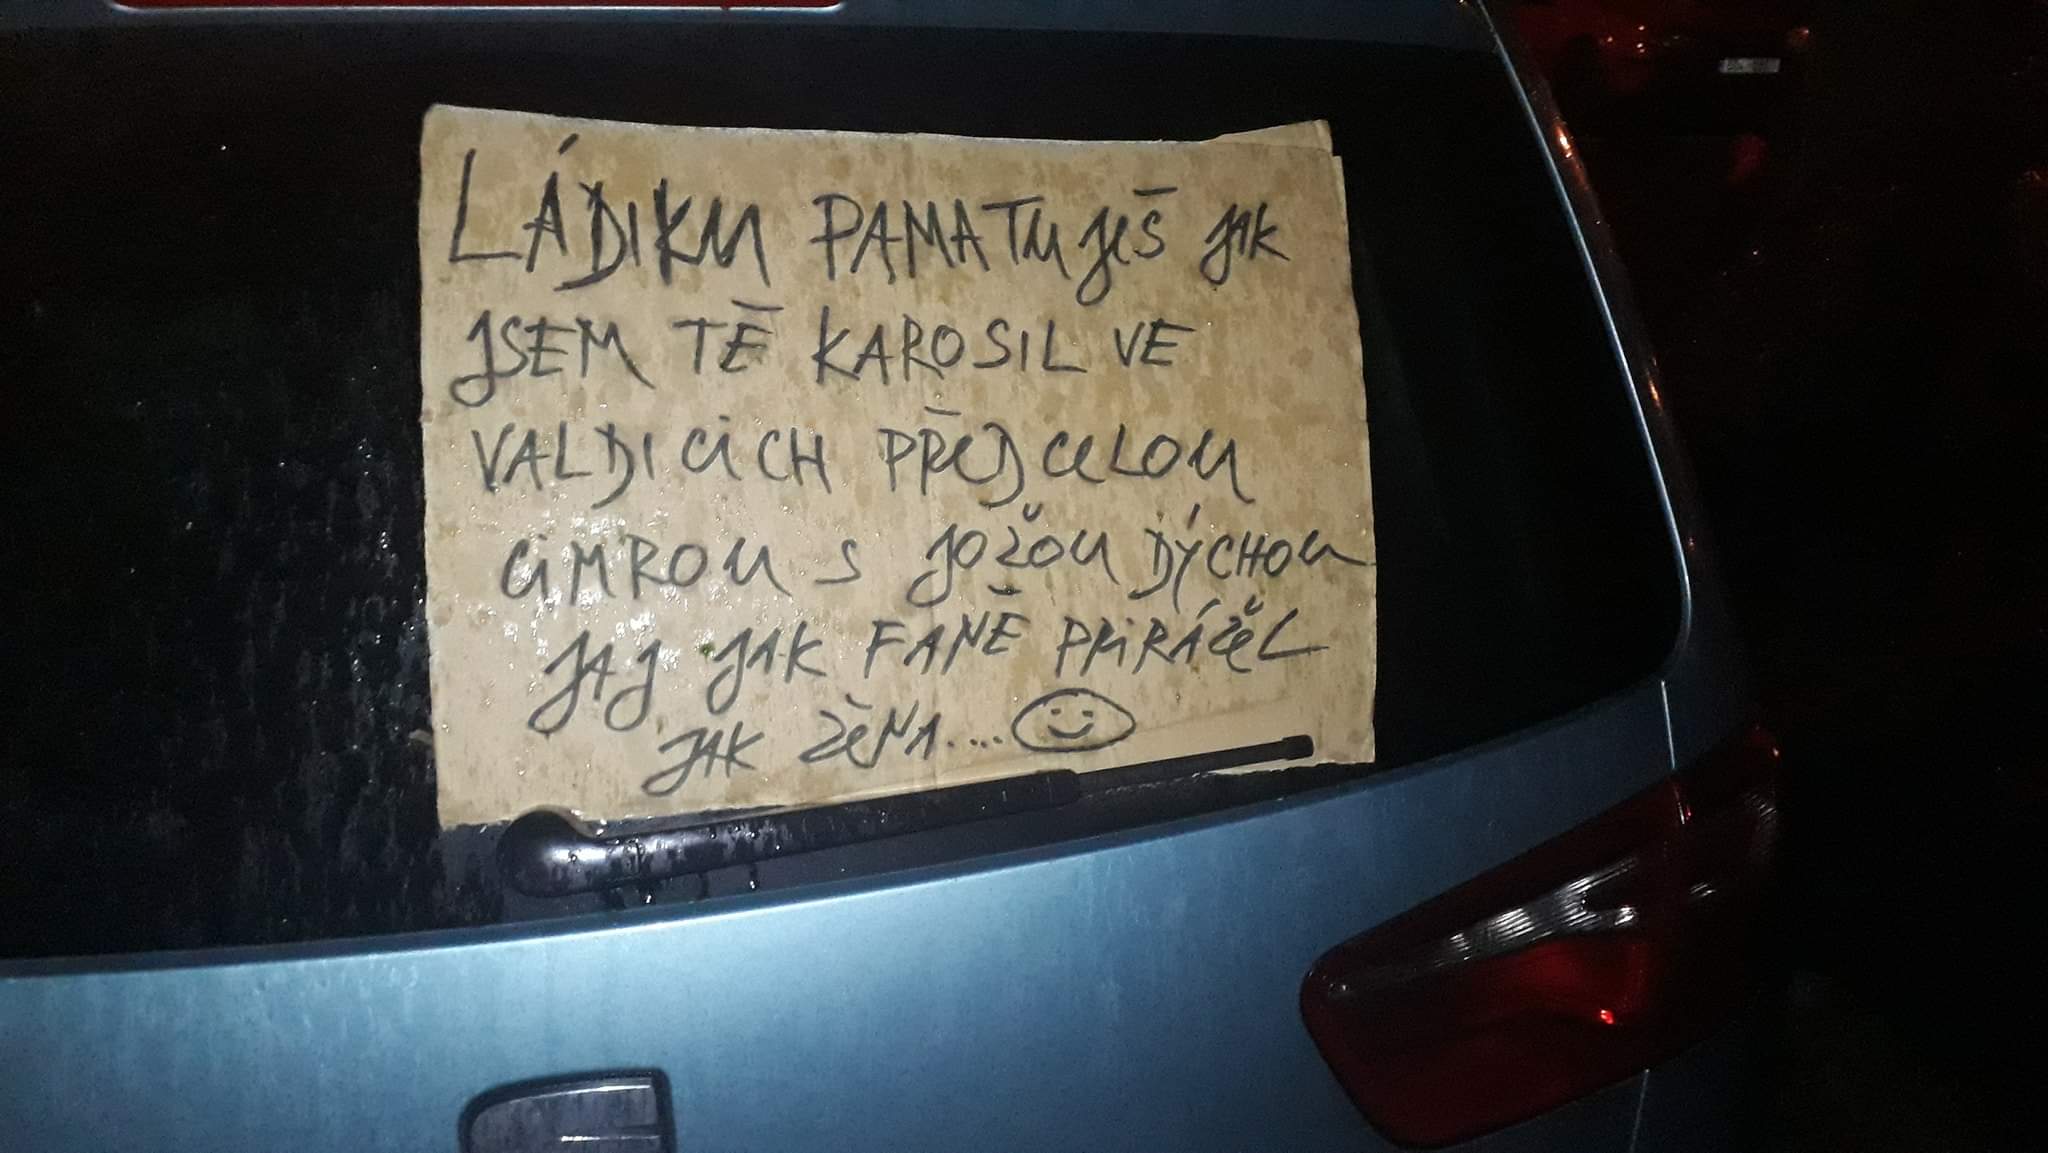 LÁDIKU PAMATUJEŠ JAK
JSEM TĚ KAROSIL VE
VALDICICH PŘED CELOU
CIMROU S JOŽOU DÝCHOU
JAJ JAK FANĚ PŘIRÁŽEL
JAK ŽENA....